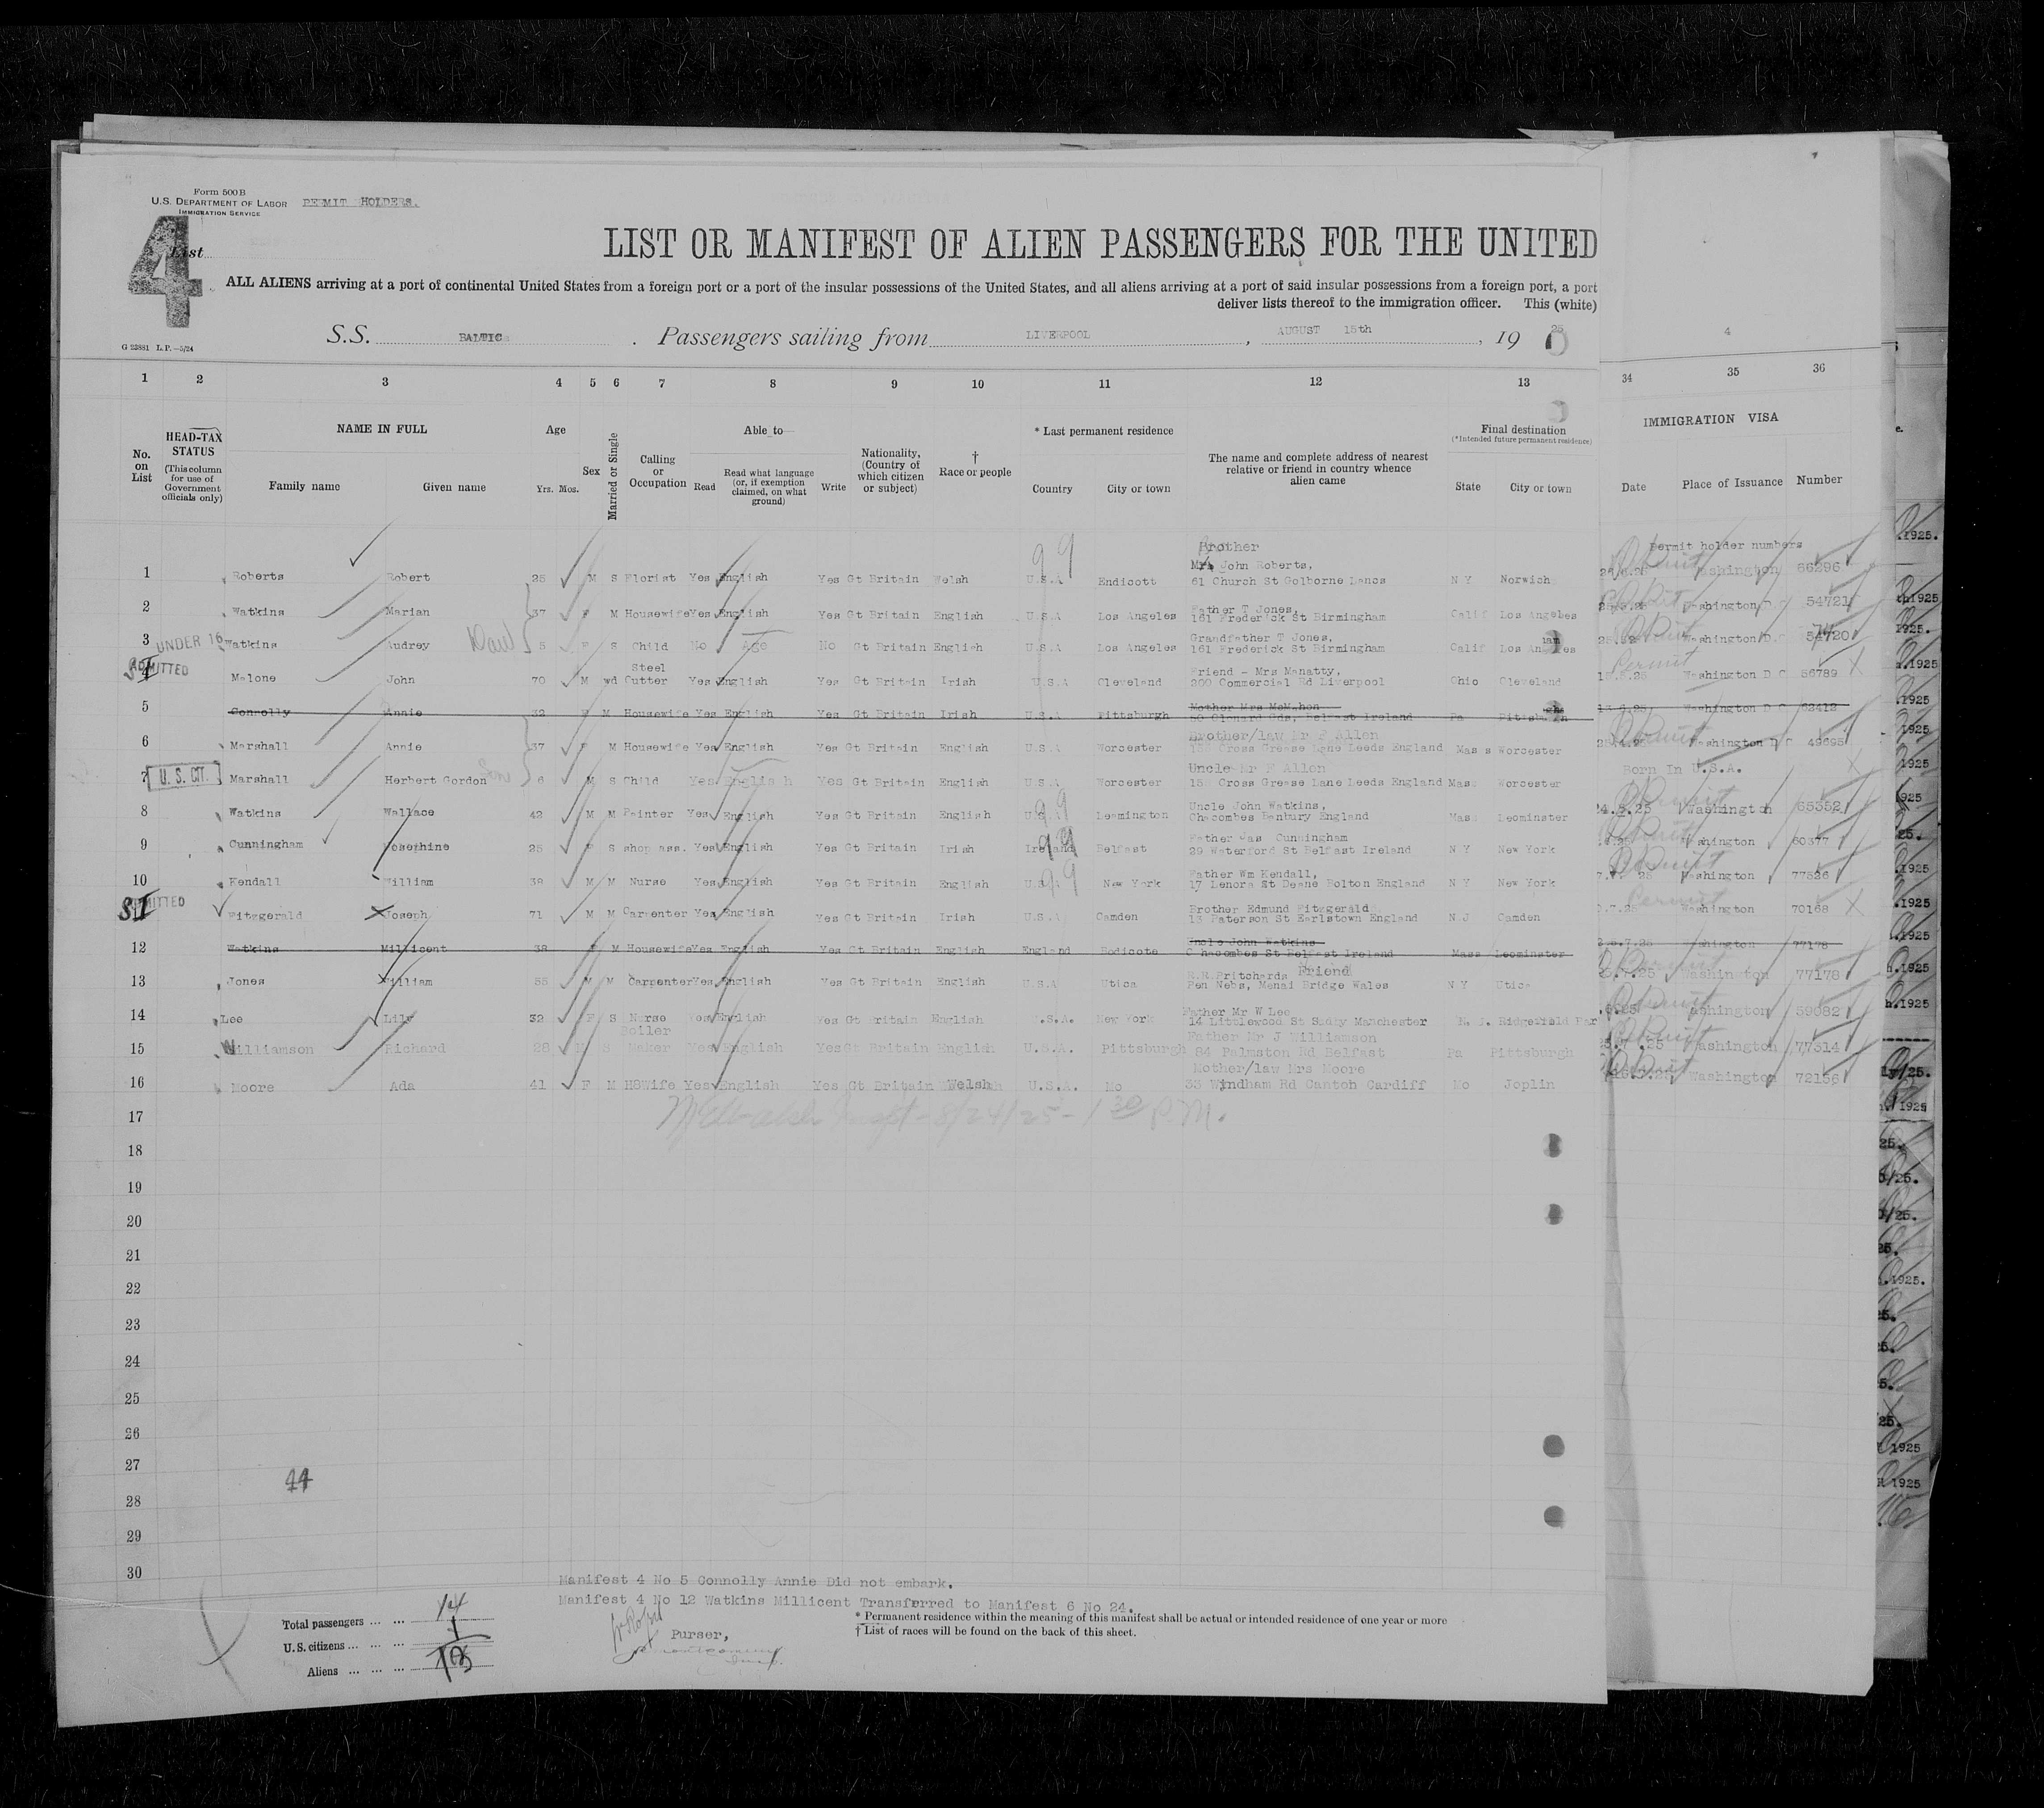 Form 500 B
U.S. DEPARTMENT OF LABOR
IMMIGRATION SERVICE
PERMIT HOLDERS.
4
List
LIST OR MANIFEST OF ALIEN PASSENGERS FOR THE UNITED
ALL ALIENS arriving at a port of continental United States from a foreign port or a port of the insular possessions of the United States, and all aliens arriving at a port of said insular possessions from a foreign port, a port
deliver lists thereof to the immigration officer. This (white)
S.S. BALTIC . Passengers sailing from LIVERPOOL , AUGUST 15th , 19 25
4
G 23881 L.P.—5/24
1 2 3 4 5 6 7 8 9 10 11 12 13 34 35 36
No. on List
HEAD-TAX STATUS (This column for use of Government officials only)
NAME IN FULL
Family name Given name
Age
Yrs. Mos.
Sex
Married or Single
Calling or Occupation
Able to
Read
Read what language (or, if exemption claimed, on what ground)
Write
Nationality, (Country of which citizen or subject)
† Race or people
* Last permanent residence
Country City or town
The name and complete address of nearest relative or friend in country whence alien came
Final destination
(*Intended future permanent residence)
State City or town
IMMIGRATION VISA
Date Place of Issuance Number
Permit holder numbers
Brother
1 Roberts Robert 25 M S Florist Yes English Yes Gt Britain Welsh U.S.A Endicott John Roberts, 61 Church St Golborne Lancs N Y Norwich Washington 66296
2 Watkins Marian 37 F M Housewife Yes English Yes Gt Britain English U.S.A Los Angeles Father T Jones, 161 Frederick St Birmingham Calif Los Angeles Washington D.C 54721
3 UNDER 16 Watkins Audrey Dau 5 F S Child No Age No Gt Britain English U.S.A Los Angeles Grandfather T Jones, 161 Frederick St Birmingham Calif Los Angeles Washington D.C 54720
4 ADMITTED Malone John 70 M wd Steel Cutter Yes English Yes Gt Britain Irish U.S.A Cleveland Friend - Mrs Manatty, 200 Commercial Rd Liverpool Ohio Cleveland Permit Washington D C 56789
5 Connolly Annie 32 F M Housewife Yes English Yes Gt Britain Irish U.S.A Pittsburgh Mother Mrs McMahon 50 Clonard Gds, Belfast Ireland Pa Pittsburgh Washington D C 62412
6 Marshall Annie 37 F M Housewife Yes English Yes Gt Britain English U.S.A Worcester Brother/law Mr F Allen Cross Grease Lane Leeds England Mass Worcester Washington D C 49695
7 U. S. CIT. Marshall Herbert Gordon Son 6 M S Child Yes English Yes Gt Britain English U.S.A Worcester Uncle Mr F Allen Cross Grease Lane Leeds England Mass Worcester Born In U.S.A.
8 Watkins Wallace 42 M M Painter Yes English Yes Gt Britain English U.S.A Leamington Uncle John Watkins, Chacombes Banbury England Mass Leominster Washington 65352
9 Cunningham Josephine 25 F S shop ass. Yes English Yes Gt Britain Irish Ireland Belfast Father Jas Cunningham 29 Waterford St Belfast Ireland N Y New York Washington 60377
10 Kendall William 39 M M Nurse Yes English Yes Gt Britain English U.S.A New York Father Wm Kendall, 17 Lenora St Deane Bolton England N Y New York Washington 77526
11 ADMITTED Fitzgerald Joseph 71 M M Carpenter Yes English Yes Gt Britain Irish U.S.A Camden Brother Edmund Fitzgerald 13 Paterson St Earlstown England N.J Camden Permit Washington 70168
12 Watkins Millicent 38 F M Housewife Yes English Yes Gt Britain English England Bodicote Uncle John Watkins Chacombes St Belfast Ireland Mass Leominster Washington 77178
13 Jones William 55 M M Carpenter Yes English Yes Gt Britain English U.S.A Utica R.R.Pritchards Friend Pen Nebs, Menai Bridge Wales N Y Utica Washington 77178
14 Lee Lily 32 F S Nurse Yes English Yes Gt Britain English U.S.A. New York Father Mr W Lee 14 Littlewood St Manchester N. J. Ridgefield Par Washington 59082
15 Williamson Richard 28 M S Boiler Maker Yes English Yes Gt Britain English U.S.A. Pittsburgh Father Mr J Williamson 84 Palmston Rd Belfast Pa Pittsburgh Washington 77314
16 Moore Ada 41 F M HSWife Yes English Yes Gt Britain Welsh U.S.A. Mo Mother/law Mrs Moore 33 Windham Rd Canton Cardiff Mo Joplin Washington 72156
17 8/24/25 - 1 30 P.M.
18
19
20
21
22
23
24
25
26
27
44
28
29
30
Manifest 4 No 5 Connolly Annie Did not embark.
Manifest 4 No 12 Watkins Millicent Transferred to Manifest 6 No 24.
Total passengers ... ... 14
U.S. citizens ... ... ... 1
Aliens ... ... ... 13
Purser,
* Permanent residence within the meaning of this manifest shall be actual or intended residence of one year or more
† List of races will be found on the back of this sheet.